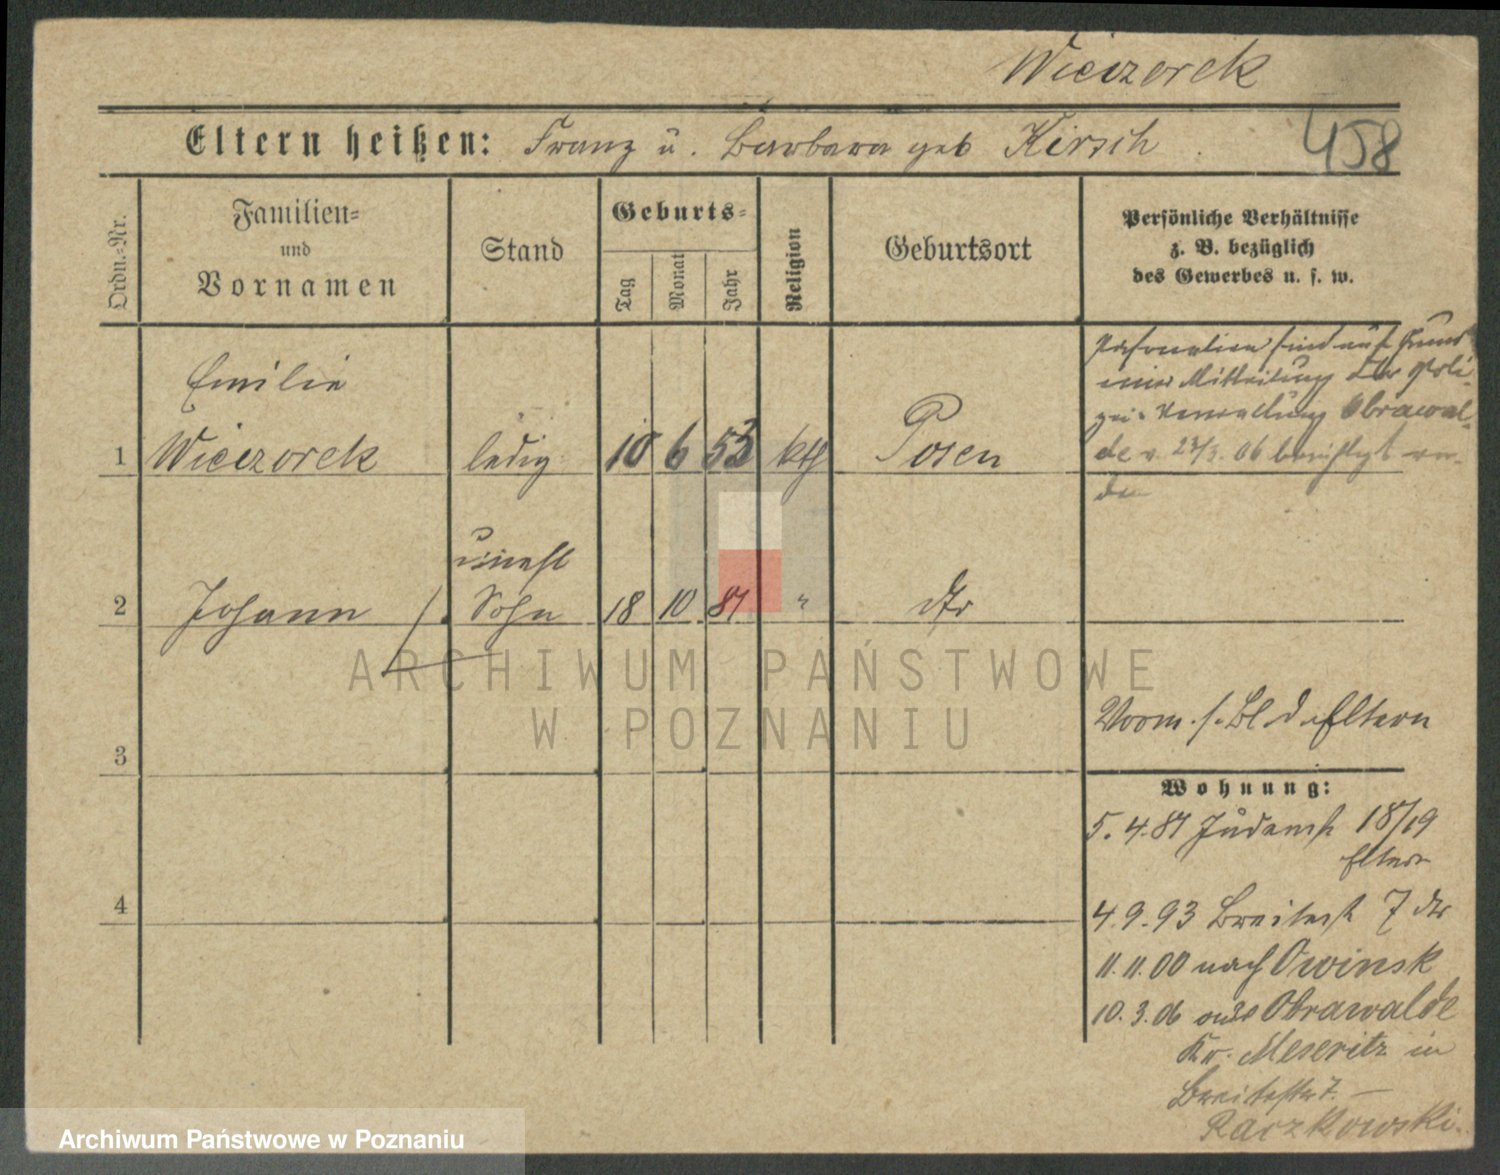 Wieczorek
458
Eltern heißen: Franz u. Barbara geb Kirsch.
Ordn.-Nr.
Familien-
und
Vornamen
Stand
Geburts-
Tag
Monat
Jahr
Religion
Geburtsort
Persönliche Verhältnisse
z. B. bezüglich
des Gewerbes u. s. w.
1
Emilie
Wieczorek
ledig
10
6
53
kth
Posen
Personalien sind auf Grund
einer Mitteilung der Poli-
zei-Verwaltung Obrawal-
de v. 23/3. 06 berichtigt wor-
den
2
Johann
unehl
Sohn
18
10
87
"
dto
3
Vorm. s. Bl d. Eltern
Wohnung:
5. 4. 87 Judenst 18/19
Eltern
4
4. 9. 93 Breitest 7 dto
11. 11. 00 nach Owinsk
10. 3. 06 aus Obrawalde
Kr. Meseritz in
Breitestr 7. —
Raczkowski.
ARCHIWUM PAŃSTWOWE
W POZNANIU
Archiwum Państwowe w Poznaniu